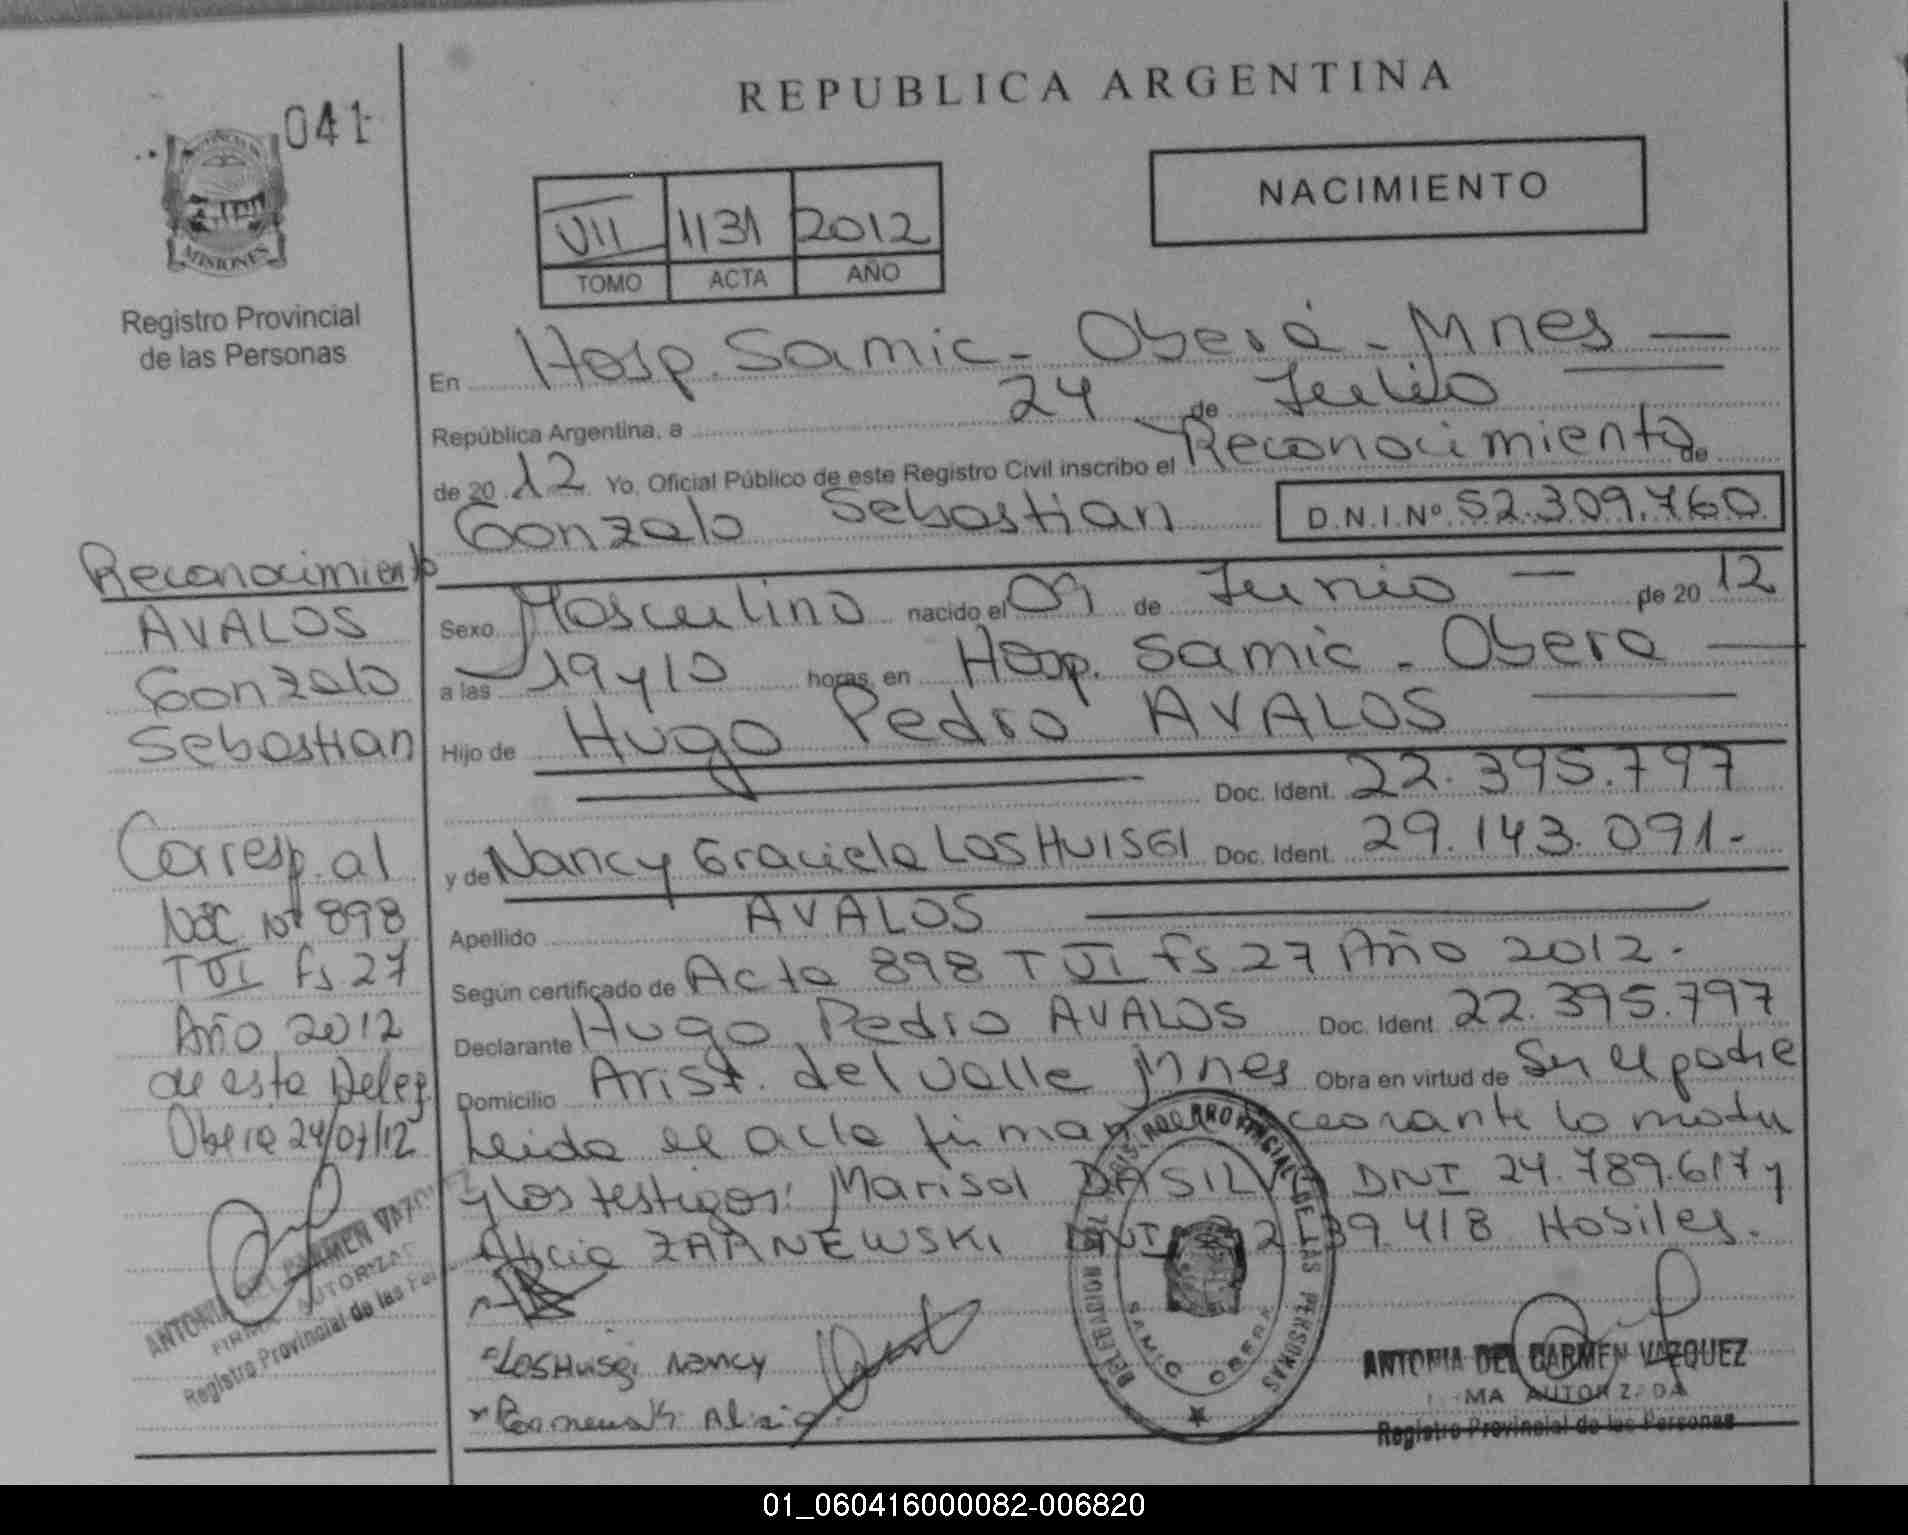 041
REPUBLICA ARGENTINA
PROVINCIA DE
MISIONES
Registro Provincial
de las Personas
VII 1131 2012
TOMO ACTA AÑO
NACIMIENTO
En Hosp. Samic - Oberá - Mnes
República Argentina, a 24 de Julio
de 2012 Yo, Oficial Público de este Registro Civil inscribo el Reconocimiento de
Gonzalo Sebastian D.N.I.Nº 52.309.760
Sexo Masculino nacido el 09 de Junio de 2012
a las 19 y 10 horas, en Hosp. Samic - Obera
Hijo de Hugo Pedro AVALOS
Doc. Ident. 22.395.797
y de Nancy Graciela LOSHUISGI Doc. Ident. 29.143.091.-
Apellido AVALOS
Según certificado de Acta 898 T VI fs 27 Año 2012.-
Declarante Hugo Pedro AVALOS Doc. Ident. 22.395.797
Domicilio Arist. del Valle Mnes Obra en virtud de Ser el padre
Leida el acta la madre
y los testigos: Marisol DASILVA DNI 24.789.617 y
Alicia DNI 39.418 Hábiles.
Loshuisgi Nancy
Alicia
Reconocimiento
AVALOS
Gonzalo
Sebastian
Corresp. al
Nac Nº 898
T VI fs. 27
Año 2012
de esta Deleg.
Obera 24/07/12
ANTONIA DEL CARMEN VAZQUEZ
FIRMA AUTORIZADA
Registro Provincial de las
REGISTRO PROVINCIAL DE LAS PERSONAS
DELEGACION
SAMIC OBERA
ANTONIA DEL CARMEN VAZQUEZ
MA AUTORIZADA
Registro Provincial de las Personas
01_060416000082-006820